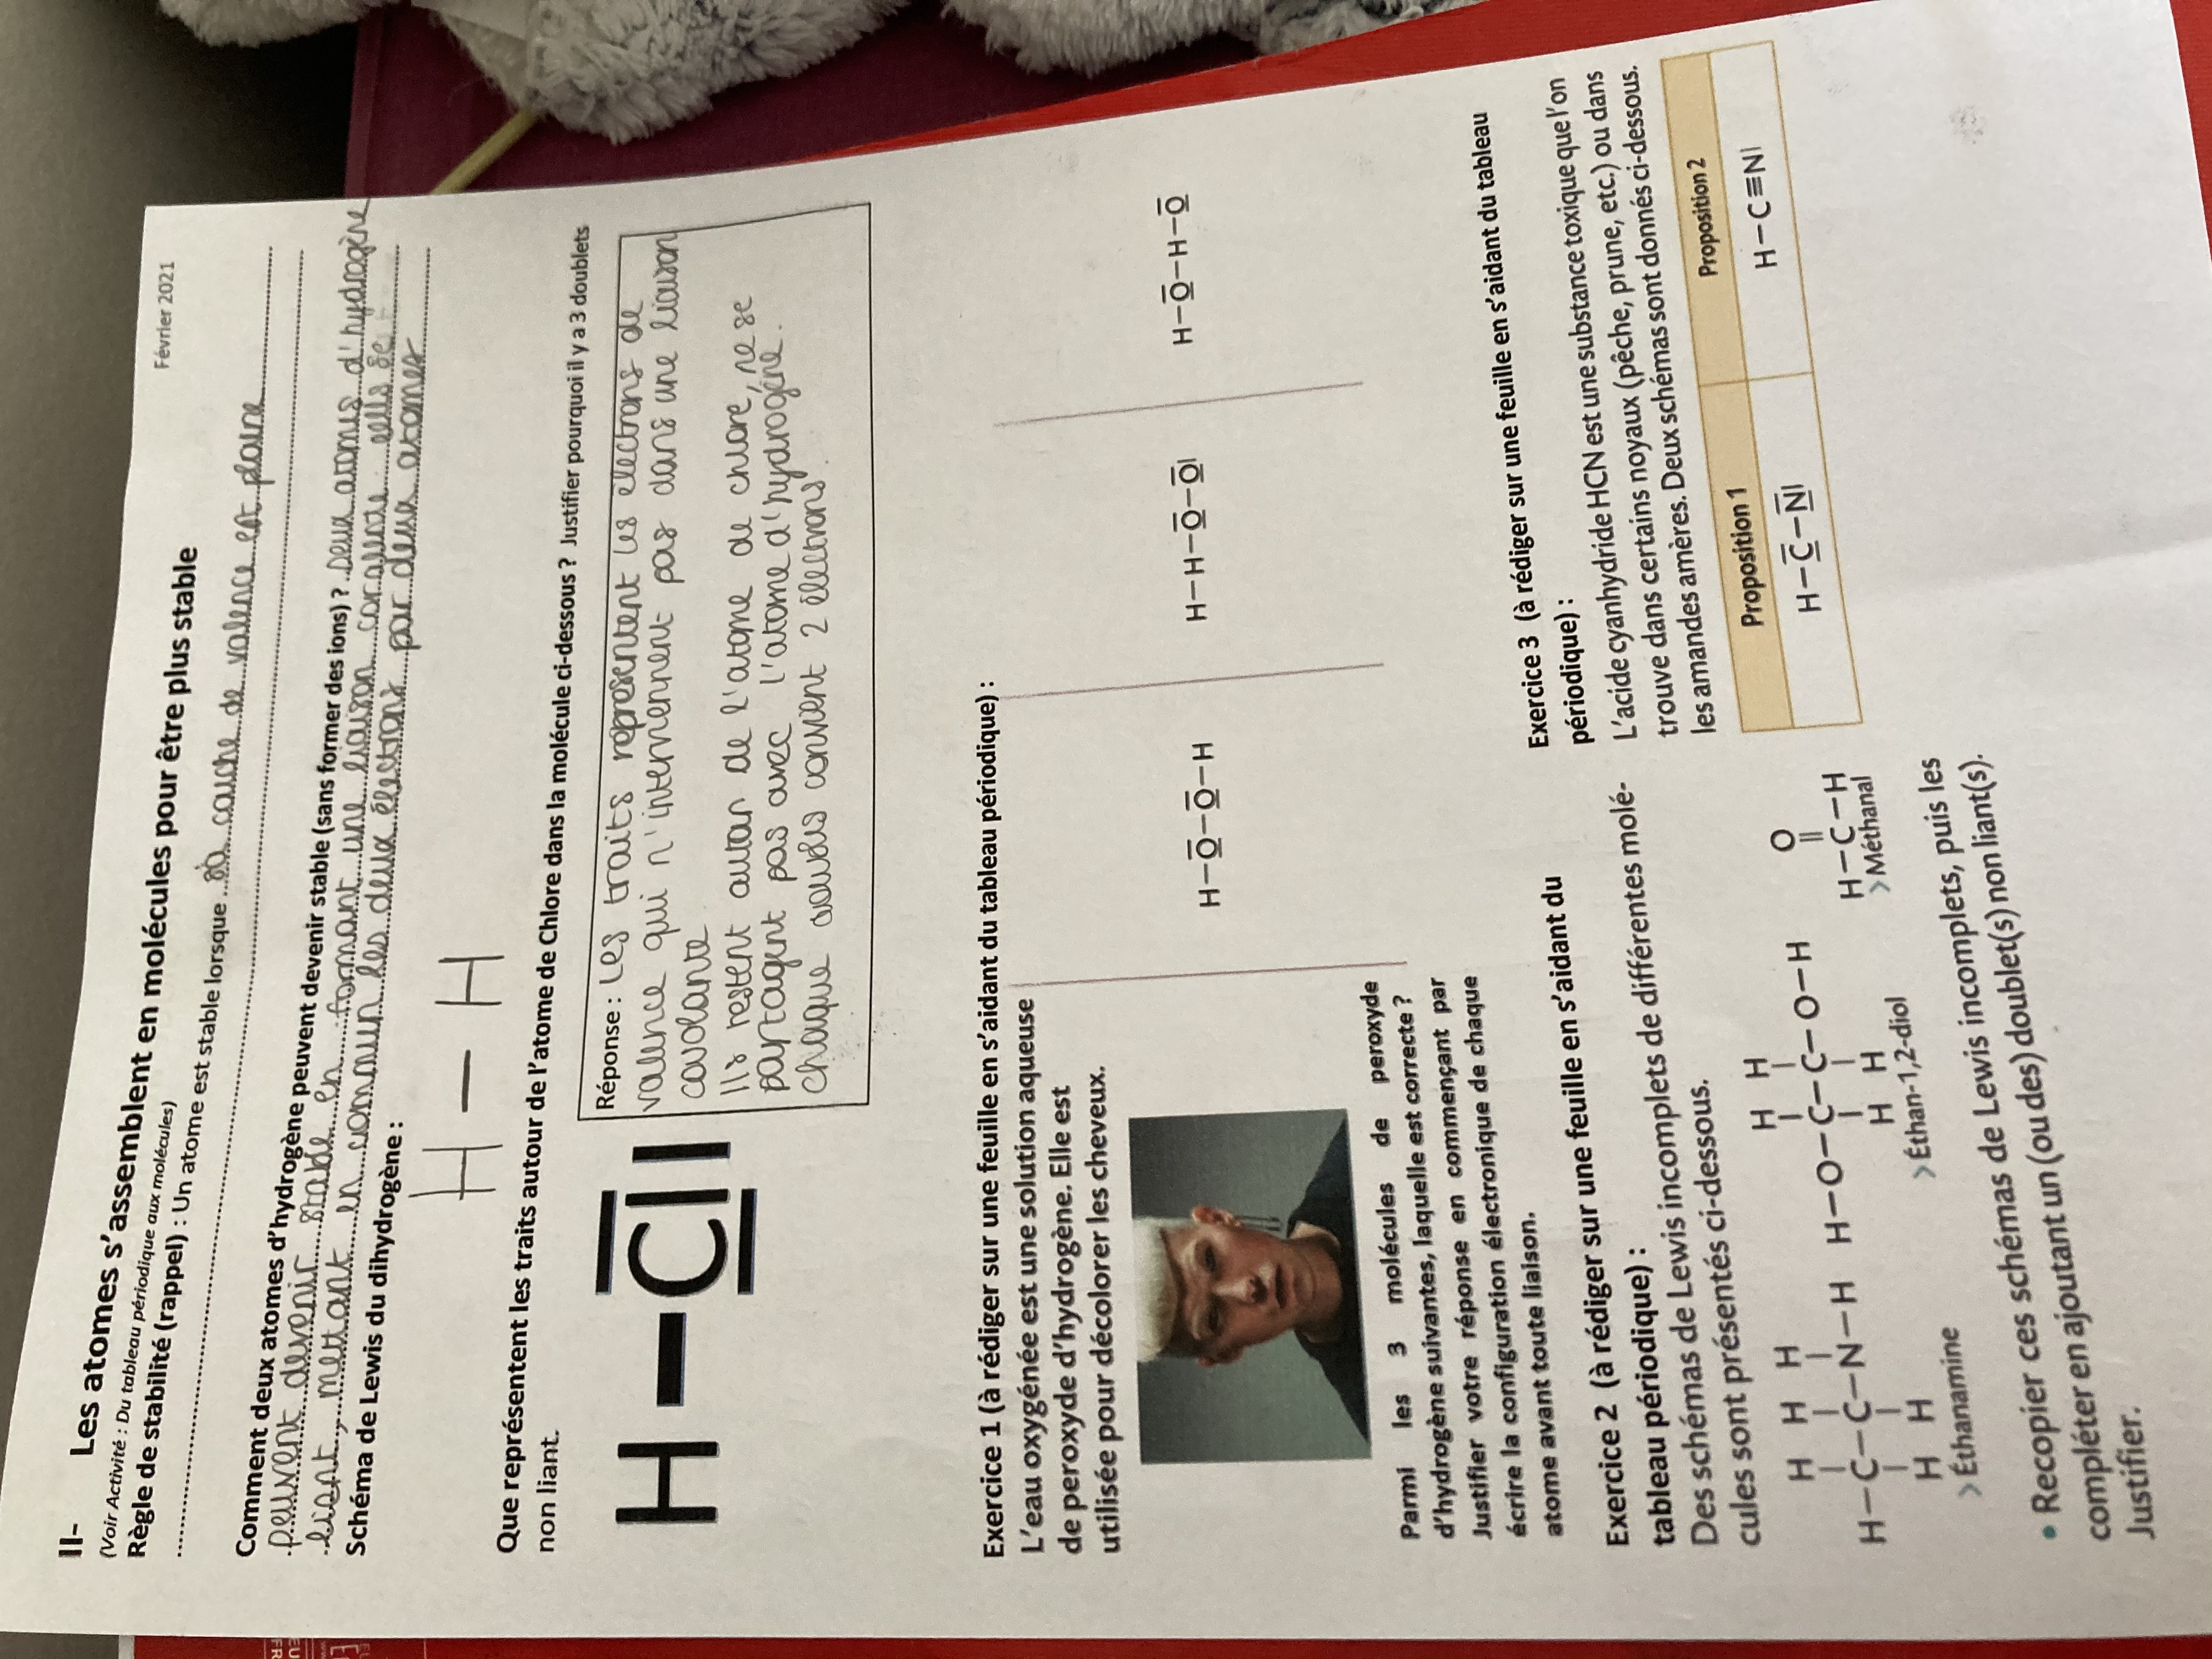 II- Les atomes s'assemblent en molécules pour être plus stable
Février 2021
(Voir Activité : Du tableau périodique aux molécules)
Règle de stabilité (rappel) : Un atome est stable lorsque sa couche de valence est plaine
Comment deux atomes d'hydrogène peuvent devenir stable (sans former des ions) ? Deux atomes d'hydrogène
peuvent devenir stable en formant une liaison covalente
liant, mettant en commun les deux électrons par deux atomes
Schéma de Lewis du dihydrogène :
H — H
Que représentent les traits autour de l'atome de Chlore dans la molécule ci-dessous ? Justifier pourquoi il y a 3 doublets
non liant.
H — Cl
Réponse : Les traits représentent les électrons de
valence qui n'interviennent pas dans une liaison
covolante
Ils restent autour de l'atome de chlore, ne se
partagent pas avec l'atome d'hydrogène.
chaque 2 électrons.
Exercice 1 (à rédiger sur une feuille en s'aidant du tableau périodique) :
L'eau oxygénée est une solution aqueuse
de peroxyde d'hydrogène. Elle est
utilisée pour décolorer les cheveux.
H–O–O–H
H–H–O–O
H–O–H–O
Parmi les 3 molécules de peroxyde
d'hydrogène suivantes, laquelle est correcte ?
Justifier votre réponse en commençant par
écrire la configuration électronique de chaque
atome avant toute liaison.
Exercice 2 (à rédiger sur une feuille en s'aidant du
tableau périodique) :
Des schémas de Lewis incomplets de différentes molé-
cules sont présentés ci-dessous.
H H H
H–C–C–N–H
H H
> Éthanamine
H H
H–O–C–C–O–H
H H
> Éthan-1,2-diol
O
H–C–H
> Méthanal
• Recopier ces schémas de Lewis incomplets, puis les
compléter en ajoutant un (ou des) doublet(s) non liant(s).
Justifier.
Exercice 3 (à rédiger sur une feuille en s'aidant du tableau
périodique) :
L'acide cyanhydride HCN est une substance toxique que l'on
trouve dans certains noyaux (pêche, prune, etc.) ou dans
les amandes amères. Deux schémas sont donnés ci-dessous.
Proposition 1
Proposition 2
H–C–N
H–C≡N